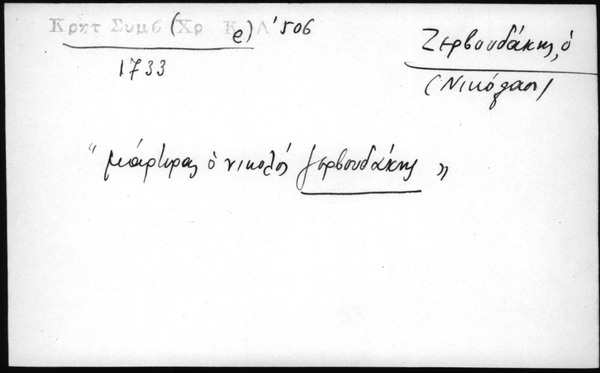 Κρητ Συμβ (Χρ Κρ) Λ' 506
1733
Ζερβουδάκης, ὁ
(Νικόλαος)
"μάρτυρας ὁ νικολός ζερβουδάκης"